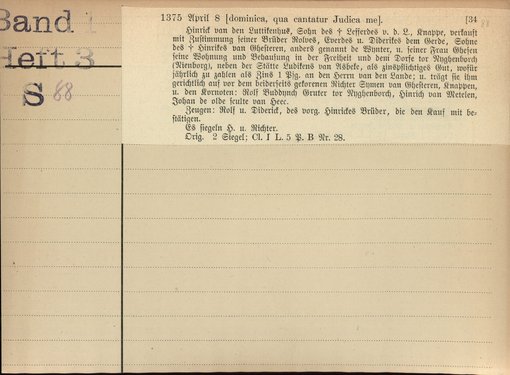 Band 1
Heft 3
S 88
1375 April 8 [dominica, qua cantatur Judica me]. [34
Hinrik van den Luttikenhus, Sohn des † Lefferdes v. d. L. Knappe, verkauft
mit Zustimmung seiner Brüder Rolves, Everdes u. Diderikes dem Gerde, Sohne
des † Hinrikes van Ghesteren, anders genannt de Wynter, u. seiner Frau Ghesen
seine Wohnung und Behausung in der Freiheit und dem Dorfe tor Nyghenborch
(Nienborg), neben der Stätte Ludikens van Asbeke, als zinspflichtiges Gut, wofür
jährlich zu zahlen als Zins 1 Pfg. an den Herrn van den Lande; u. trägt sie ihm
gerichtlich auf vor dem beiderseits gekorenen Richter Symen van Ghesteren, Knappen,
u. den Kornoten: Rolf Buddynch Gruter tor Nyghenborch, Hinrich van Metelen,
Johan de olde sculte van Heec.
Zeugen: Rolf u. Diderick, des vorg. Hinrickes Brüder, die den Kauf mit be-
stätigen.
Es siegeln H. u. Richter.
Orig. 2 Siegel; Cl. I L. 5 P. B Nr. 28.